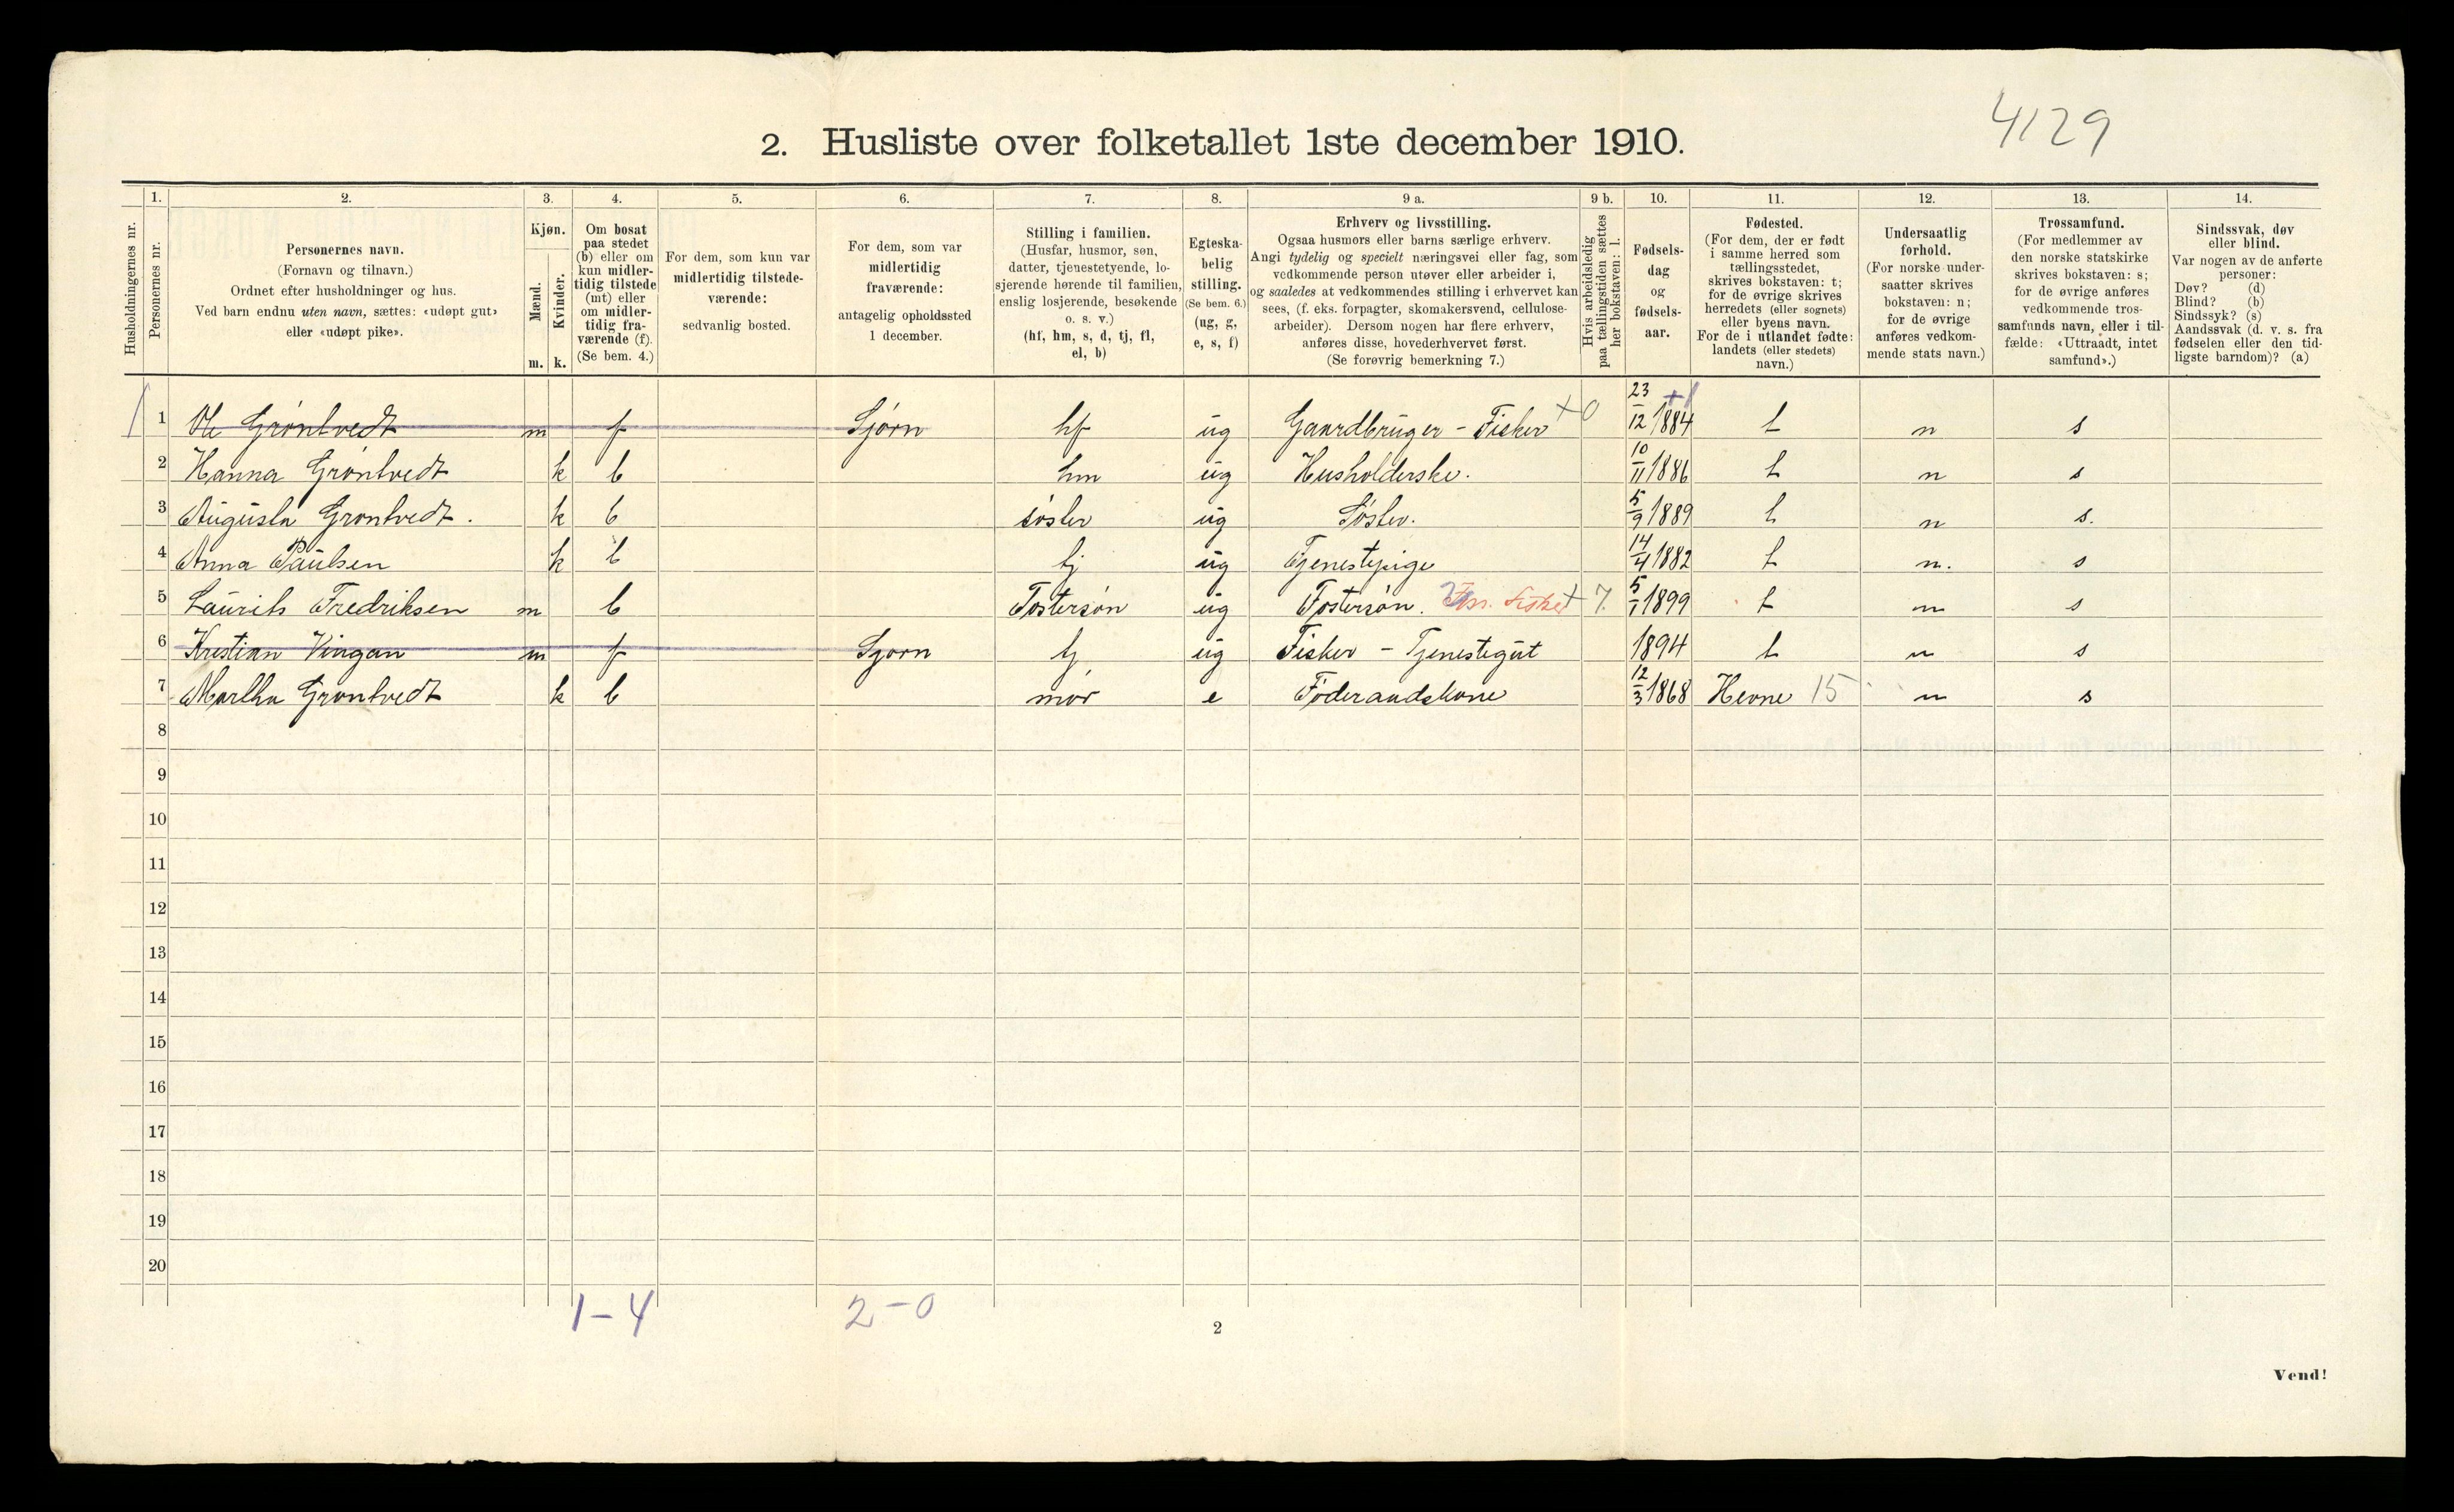 4129
2. Husliste over folketallet 1ste december 1910.
Husholdningernes nr.
1.
Personernes nr.
2.
Personernes navn.
(Fornavn og tilnavn.)
Ordnet efter husholdninger og hus.
Ved barn endnu uten navn, sættes: «udøpt gut»
eller «udøpt pike».
3.
Kjøn.
Mænd.
Kvinder.
m. k.
4.
Om bosat
paa stedet
(b) eller om
kun midler-
tidig tilstede
(mt) eller
om midler-
tidig fra-
værende (f).
(Se bem. 4.)
5.
For dem, som kun var
midlertidig tilstede-
værende:
sedvanlig bosted.
6.
For dem, som var
midlertidig
fraværende:
antagelig opholdssted
1 december.
7.
Stilling i familien.
(Husfar, husmor, søn,
datter, tjenestetyende, lo-
sjerende hørende til familien,
enslig losjerende, besøkende
o. s. v.)
(hf, hm, s, d, tj, fl,
el, b)
8.
Egteska-
belig
stilling.
(Se bem. 6.)
(ug, g,
e, s, f)
9 a.
Erhverv og livsstilling.
Ogsaa husmors eller barns særlige erhverv.
Angi tydelig og specielt næringsvei eller fag, som
vedkommende person utøver eller arbeider i,
og saaledes at vedkommendes stilling i erhvervet kan
sees, (f. eks. forpagter, skomakersvend, cellulose-
arbeider). Dersom nogen har flere erhverv,
anføres disse, hovederhvervet først.
(Se forøvrig bemerkning 7.)
9 b.
Hvis arbeidsledig
paa tællingstiden sættes
her bokstaven: l.
10.
Fødsels-
dag
og
fødsels-
aar.
11.
Fødested.
(For dem, der er født
i samme herred som
tællingsstedet,
skrives bokstaven: t;
for de øvrige skrives
herredets (eller sognets)
eller byens navn.
For de i utlandet fødte:
landets (eller stedets)
navn.)
12.
Undersaatlig
forhold.
(For norske under-
saatter skrives
bokstaven: n;
for de øvrige
anføres vedkom-
mende stats navn.)
13.
Trossamfund.
(For medlemmer av
den norske statskirke
skrives bokstaven: s;
for de øvrige anføres
vedkommende tros-
samfunds navn, eller i til-
fælde: «Uttraadt, intet
samfund».)
14.
Sindssvak, døv
eller blind.
Var nogen av de anførte
personer:
Døv? (d)
Blind? (b)
Sindssyk? (s)
Aandssvak (d. v. s. fra
fødselen eller den tid-
ligste barndom)? (a)
1 Ole Grøntvedt m f Sjørn hf ug Gaardbruger - Fisker +0 23/12 1884 t n s
2 Hanna Grøntvedt k b hm ug Husholderske. 10/11 1886 t n s
3 Augusta Grøntvedt. k b søster ug Søster. 5/9 1889 t n s.
4 Anna Paulsen k b tj ug Tjenestepige 14/4 1882 t n. s
5 Laurits Fredriksen m b Fostersøn ug Fostersøn. + 7. 5/1 1899 t n s
6 Kristian Vingan m f Sjørn tj ug Fisker - Tjenestegut 1894 t n s
7 Martha Grøntvedt k b mor e Føderaadskone 12/3 1868 Hevne 15 n s
8
9
10
11
12
13
14
15
16
17
18
19
20
1-4 2-0
2
Vend!